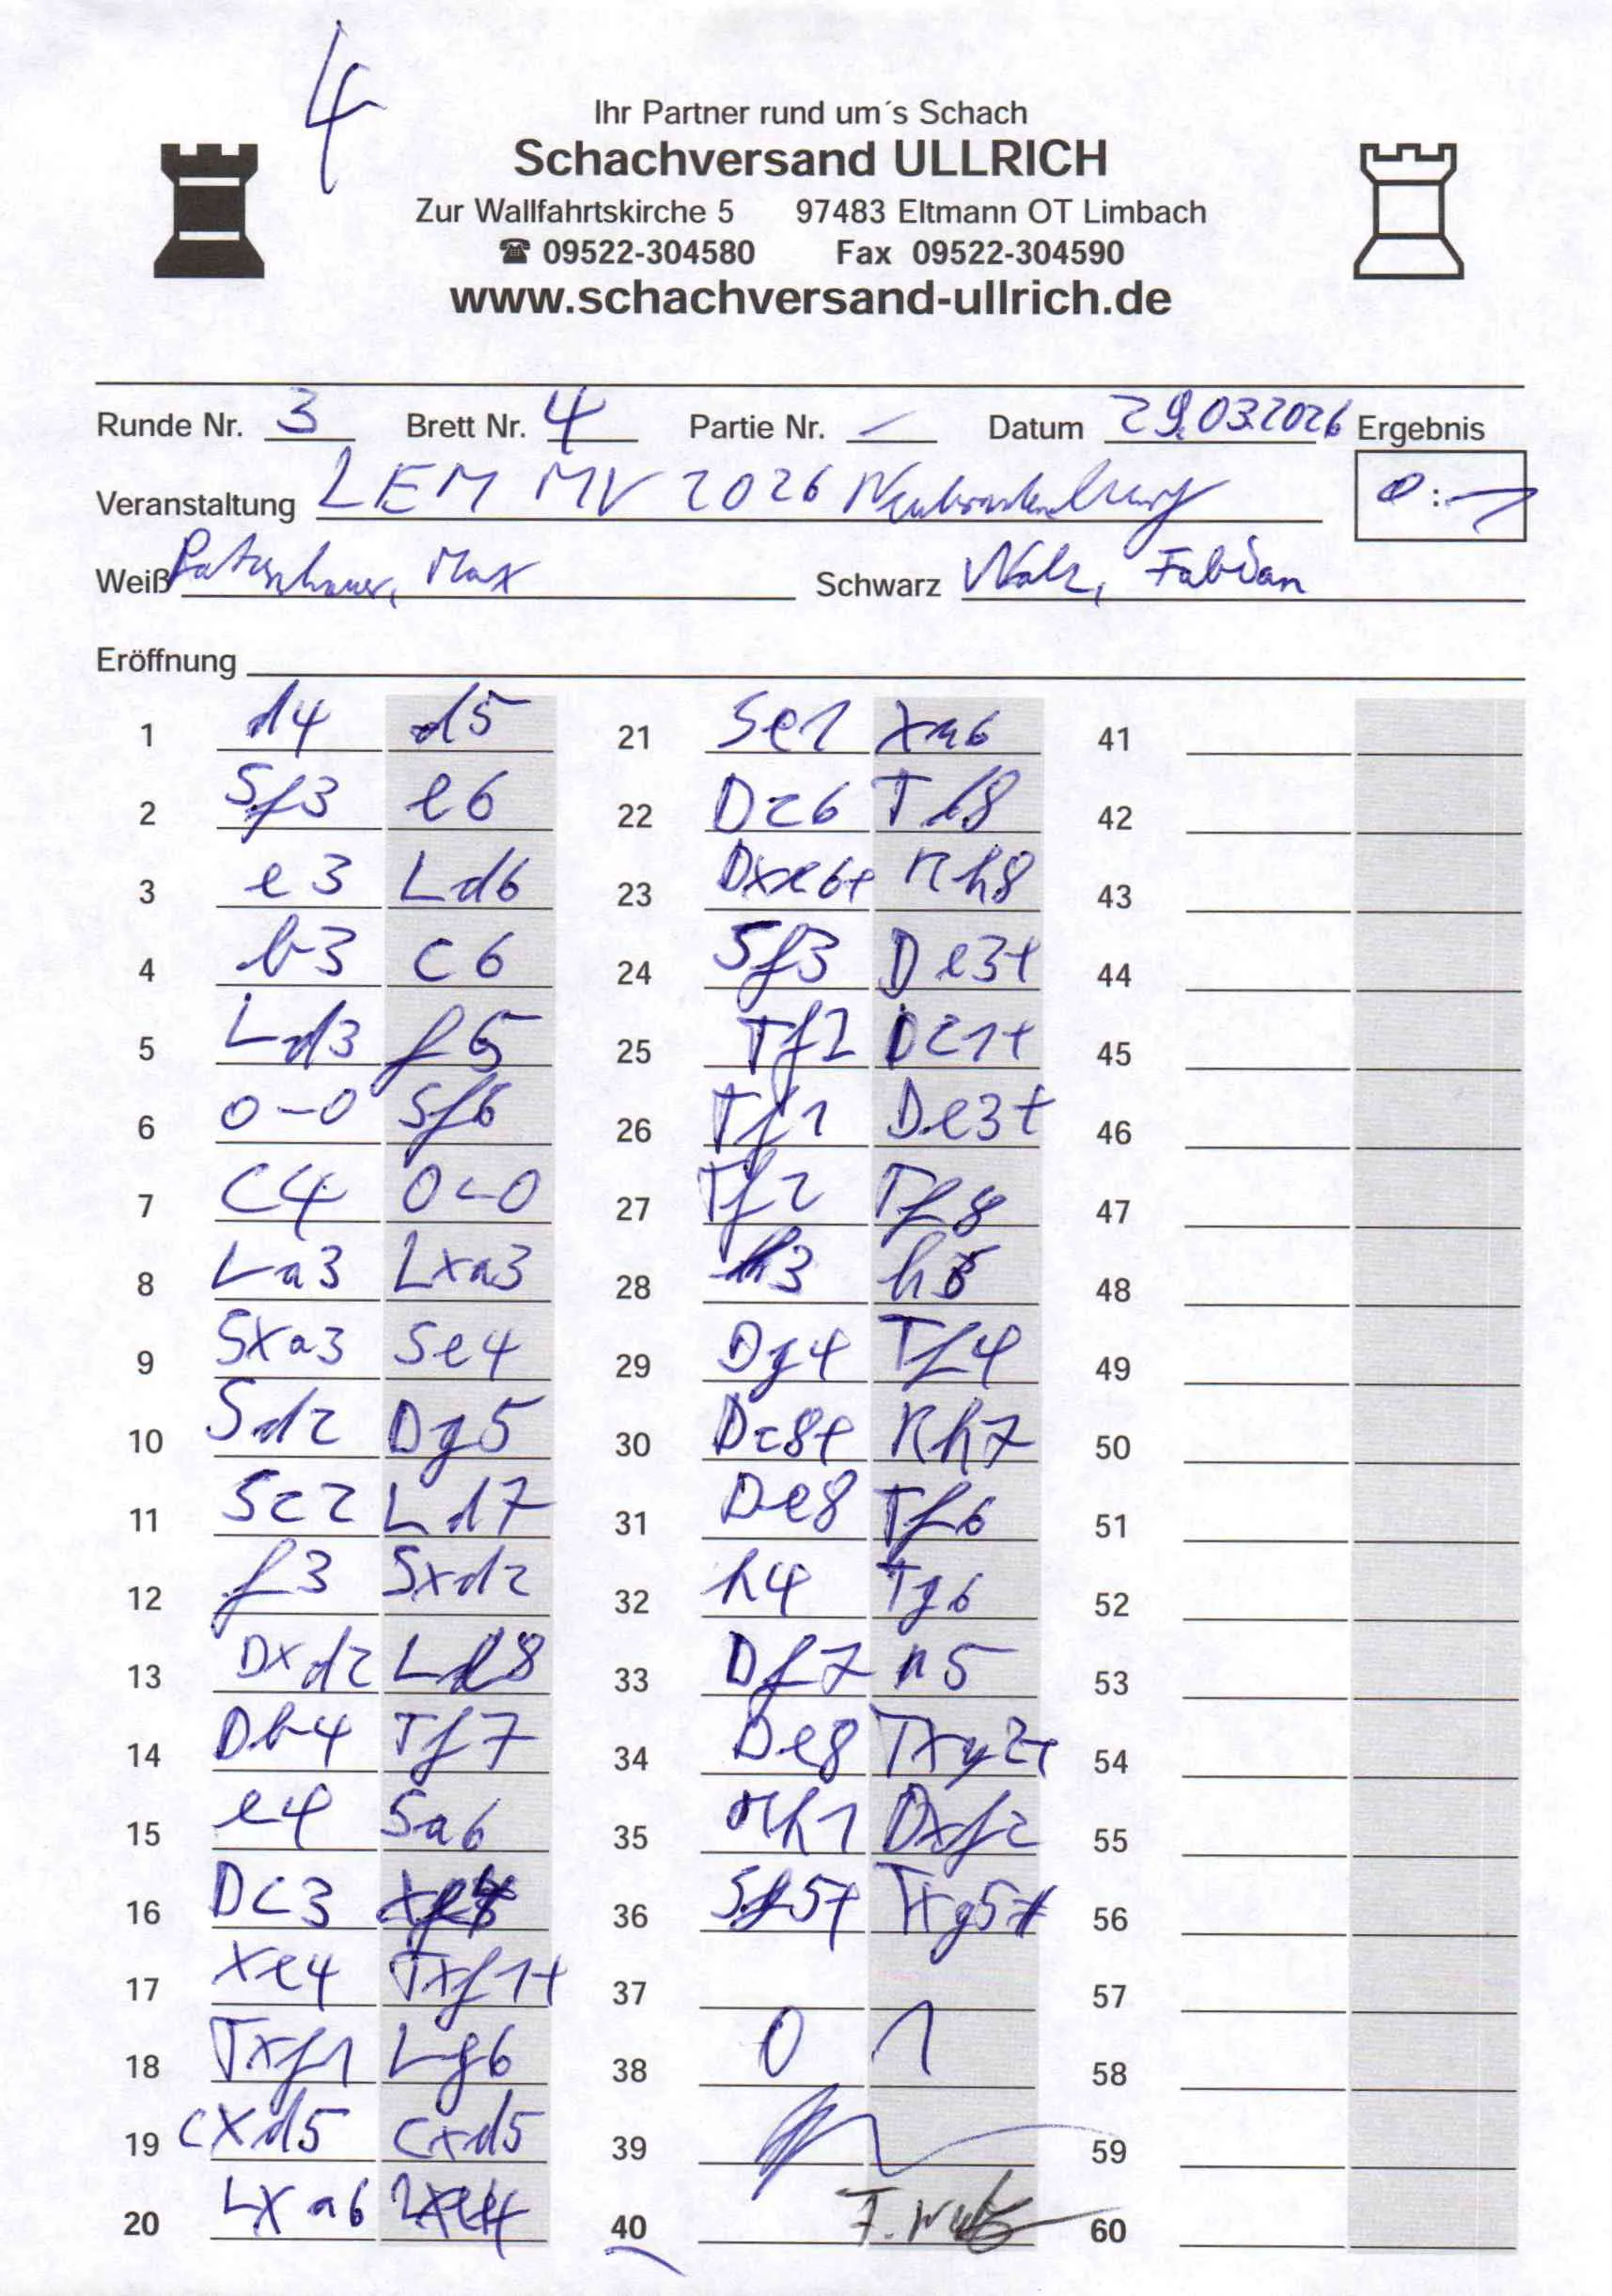 4
Ihr Partner rund um´s Schach
Schachversand ULLRICH
Zur Wallfahrtskirche 5 97483 Eltmann OT Limbach
☎ 09522-304580 Fax 09522-304590
www.schachversand-ullrich.de
Runde Nr. 3 Brett Nr. 4 Partie Nr. – Datum 29.03.2026 Ergebnis
Veranstaltung LEM MV 2026 Neubrandenburg 0:1
Weiß Max Schwarz Fabian
Eröffnung
1 d4 d5 21 Se1 xa6 41
2 Sf3 e6 22 Dc6 42
3 e3 Ld6 23 Dxe6+ Kh8 43
4 b3 c6 24 Sf3 De3+ 44
5 Ld3 f5 25 Tf2 Dc1+ 45
6 0-0 Sf6 26 Tf1 De3+ 46
7 c4 0-0 27 Tf2 Tf8 47
8 La3 Lxa3 28 h3 48
9 Sxa3 Se4 29 Dg4 Tf4 49
10 Sd2 Dg5 30 Dc8+ Kh7 50
11 Sc2 Ld7 31 De8 Tf6 51
12 f3 Sxd2 32 h4 Tg6 52
13 Dxd2 Le8 33 Df7 a5 53
14 Db4 Tf7 34 De8 Txg2+ 54
15 e4 Sa6 35 Kh1 Dxf2 55
16 Dc3 36 Txg5# 56
17 xe4 Txf1+ 37 57
18 Txf1 Lg6 38 0 1 58
19 cxd5 cxd5 39 59
20 Lxa6 Lxe4 40 60